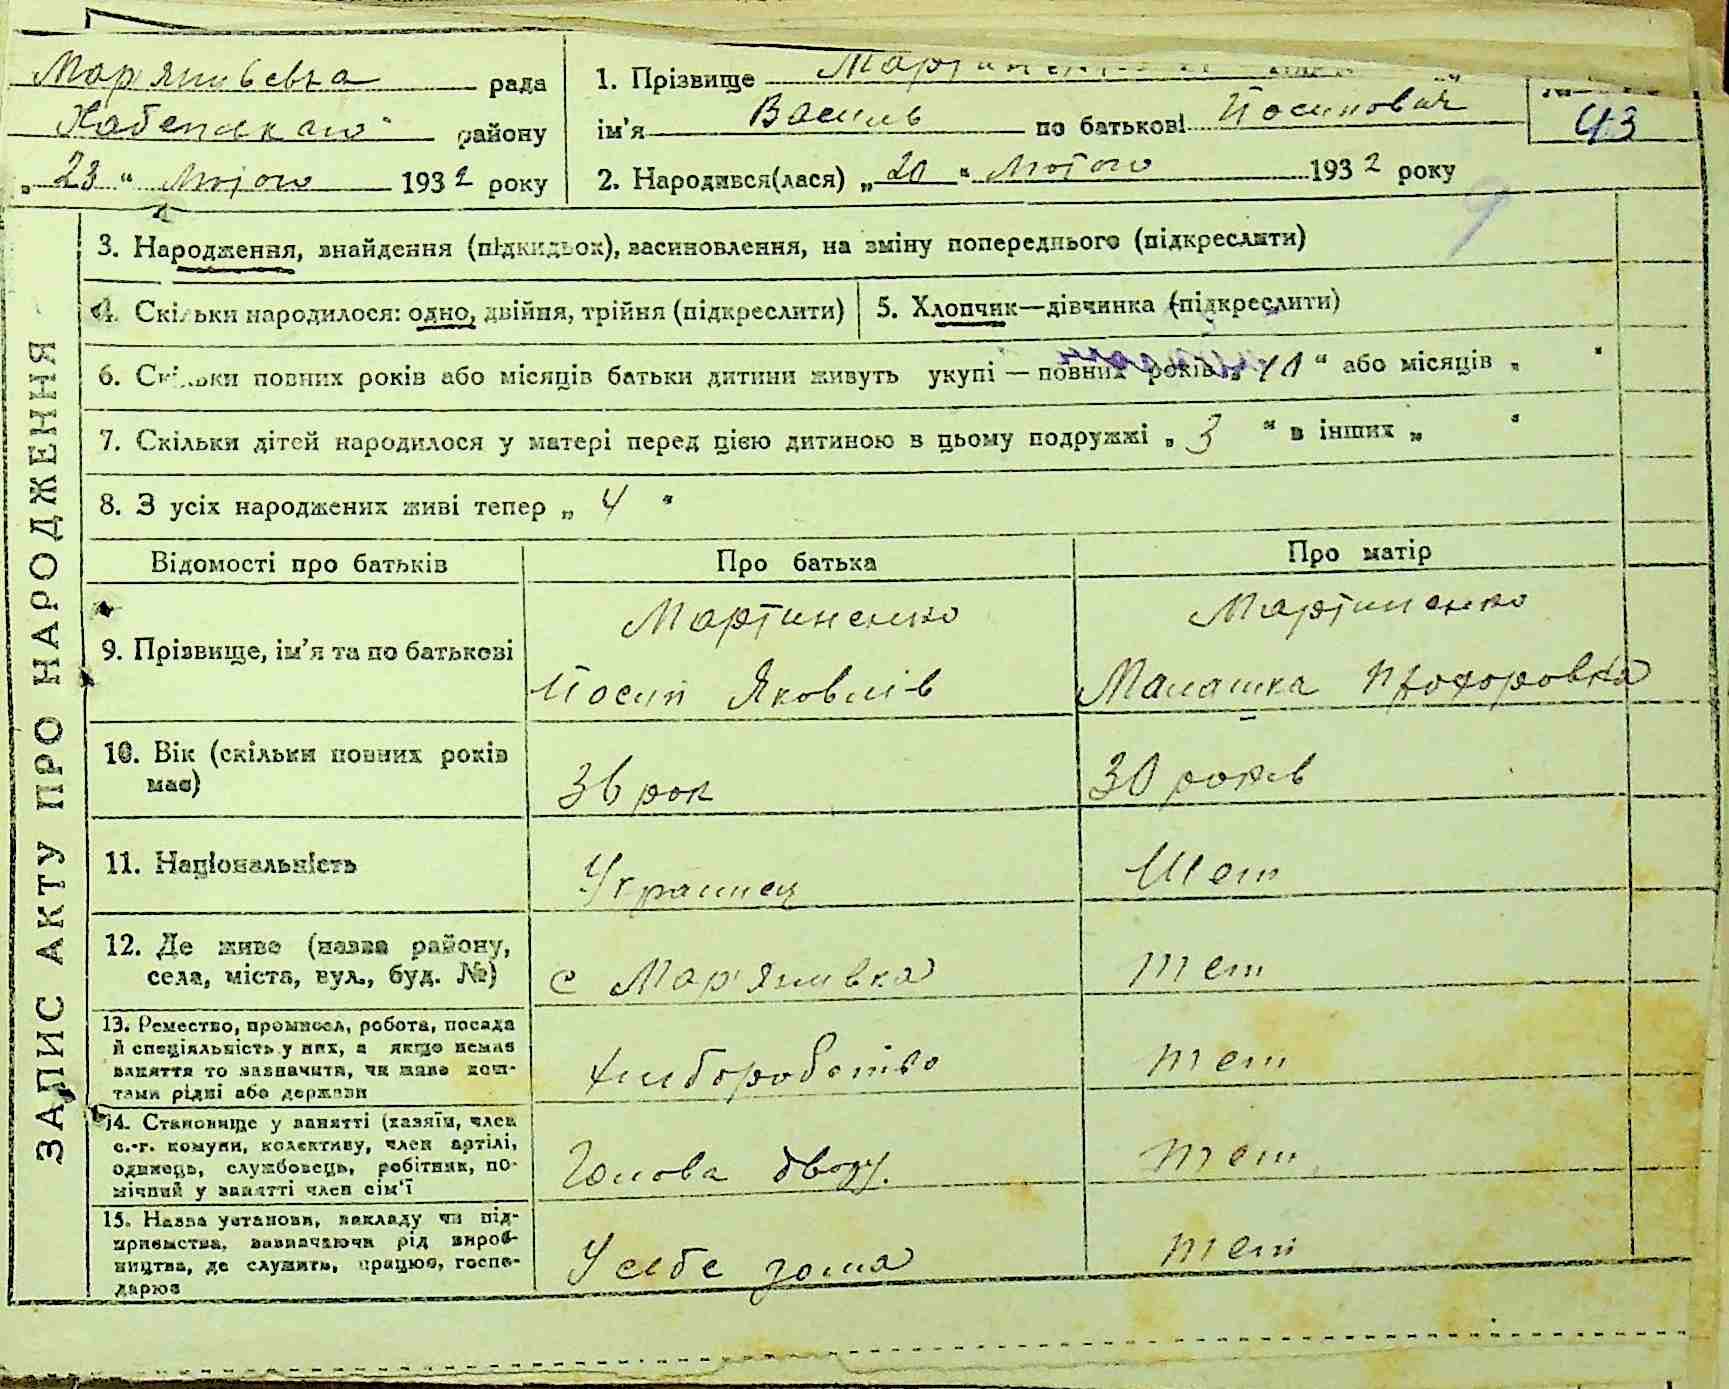 Мар'янівська рада
району
„23“ Лютого 1932 року
1. Прізвище
ім'я Василь по батькові Йосипович
43
2. Народився(лася) „20“ Лютого 1932 року
3. Народження, знайдення (підкидьок), всиновлення, на зміну попереднього (підкреслити)
4. Скільки народилося: одно, двійня, трійня (підкреслити)
5. Хлопчик—дівчинка (підкреслити)
6. Скільки повних років або місяців батьки дитини живуть укупі — повних років „10“ або місяців „ “
7. Скільки дітей народилося у матері перед цією дитиною в цьому подружжі „3“ в інших „ “
8. З усіх народжених живі тепер „4“
ЗАПИС АКТУ ПРО НАРОДЖЕННЯ
Відомості про батьків
Про батька
Про матір
9. Прізвище, ім'я та по батькові
Мартиненко
Йосип Яковлів
Мартиненко
Малашка Прохоровна
10. Вік (скільки повних років
має)
36 рок
30 років
11. Національність
Украинец
Теж
12. Де живе (назва району,
села, міста, вул., буд. №)
с Мар'янивка
теж
13. Ремество, промисел, робота, посада
й спеціяльність у них, а якщо немає
заняття то зазначити, чи живе кош-
тами рідні або держави
хліборобство
теж
14. Становище у занятті (хазяїн, член
с.-г. комуни, колективу, член артілі,
одинець, службовець, робітник, по-
мічний у занятті член сім'ї
Голова двору.
теж
15. Назва установи, закладу чи під-
приємства, зазначаючи рід вироб-
ництва, де служить, працює, госпо-
дарює
У себе дома
теж